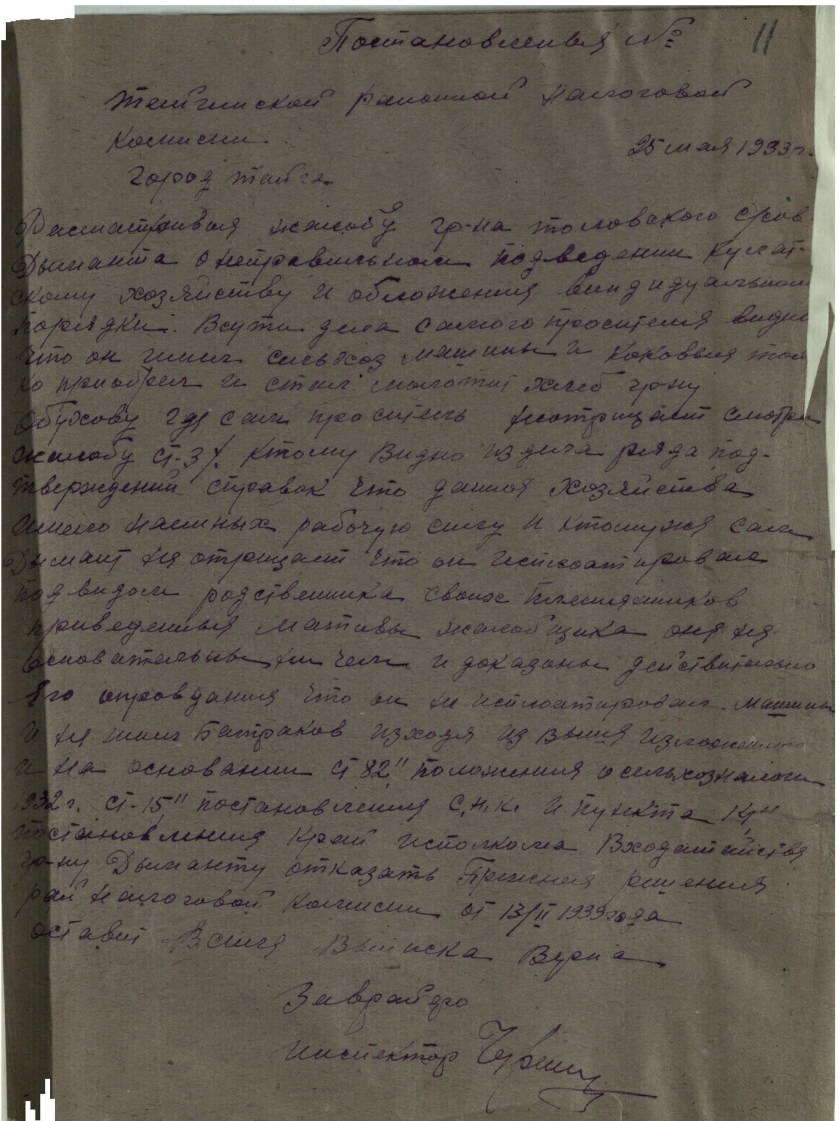 Постановления №
11
Тайгинской районной налоговой
Комисии
25 мая 1933 г.
Город Тайга
Расматривая жалобу гр-на
Дыманта о неправильном подведении кулат-
скому хозяйству и обложения виндидуальном
порядки. Всути дела самого просителя видно
что он имел сельхоз машины и каковыя тол
ко приобрел и стал молотит хлеб гр-ну
Обухову где сам проситель неотрицает смотри
жалобу ст-3/. ктому видно из дела ряда под-
тверждений справок что данное хозяйства
имело наемных рабочую силу и ктомужа сам
Дымант не отрицает что он исплоатировал
под видом родственника своих племянников
приведенныя мативы жалобщика оне не
основательны ни чем и доказаны действительно
его оправдания что он не исплоатировал машины
и не имел батраков изходя из выше изложенного
и на основании ст 82" положения о сельхозналоги
1932 г. ст-15" постановления С.Н.К. и пункта
постановления Край исполкома Входатайства
гр-ну Дыманту отказать Прежния решения
рай налоговой комисии от 13/II 1933 года
оставит Всиле Выписка Верна
Заврайфо
инспектор